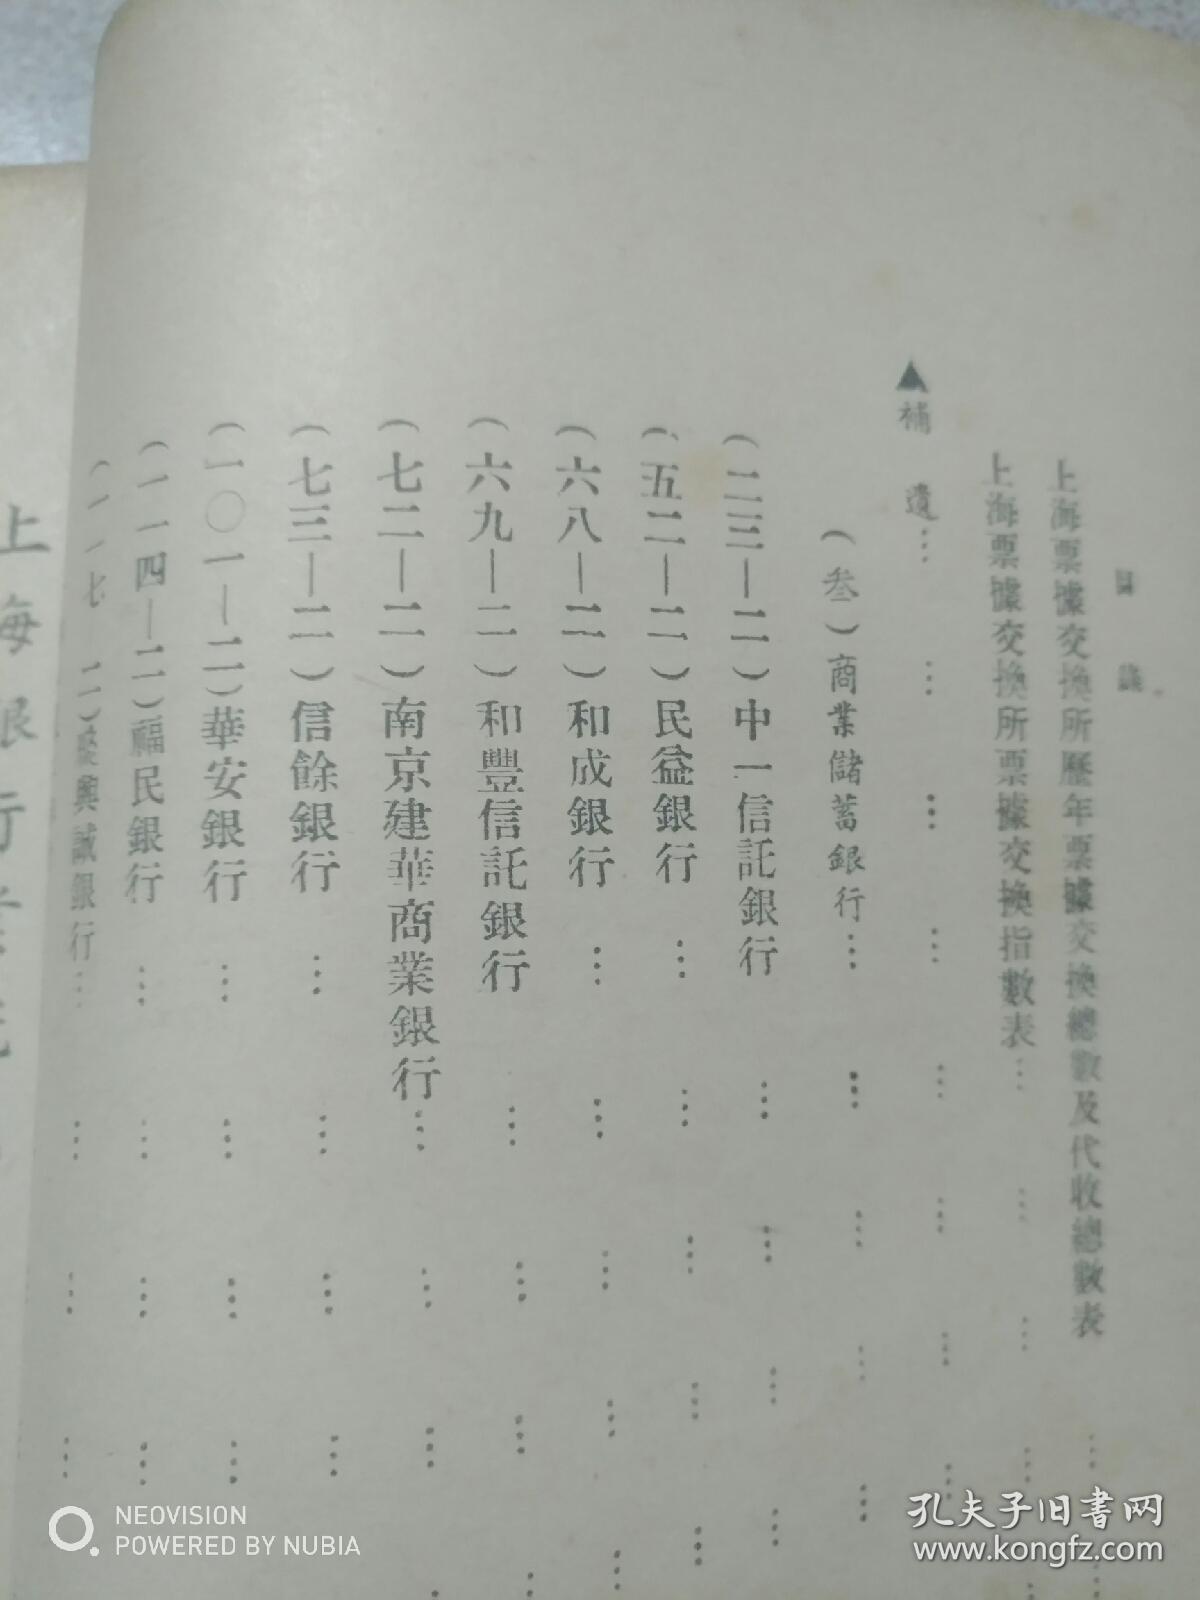 目錄
上海票據交換所歷年票據交換總數及代收總數表
上海票據交換所票據交換指數表
▲補遺
（叁）商業儲蓄銀行
（二三—二）中一信託銀行
（五二—二）民益銀行
（六八—二）和成銀行
（六九—二）和豐信託銀行
（七二—二）南京建華商業銀行
（七三—二）信餘銀行
（一〇一—二）華安銀行
（一一四—二）福民銀行
（一一七—二）聚興誠銀行
上海銀行業
NEOVISION
POWERED BY NUBIA
孔夫子旧书网
www.kongfz.com